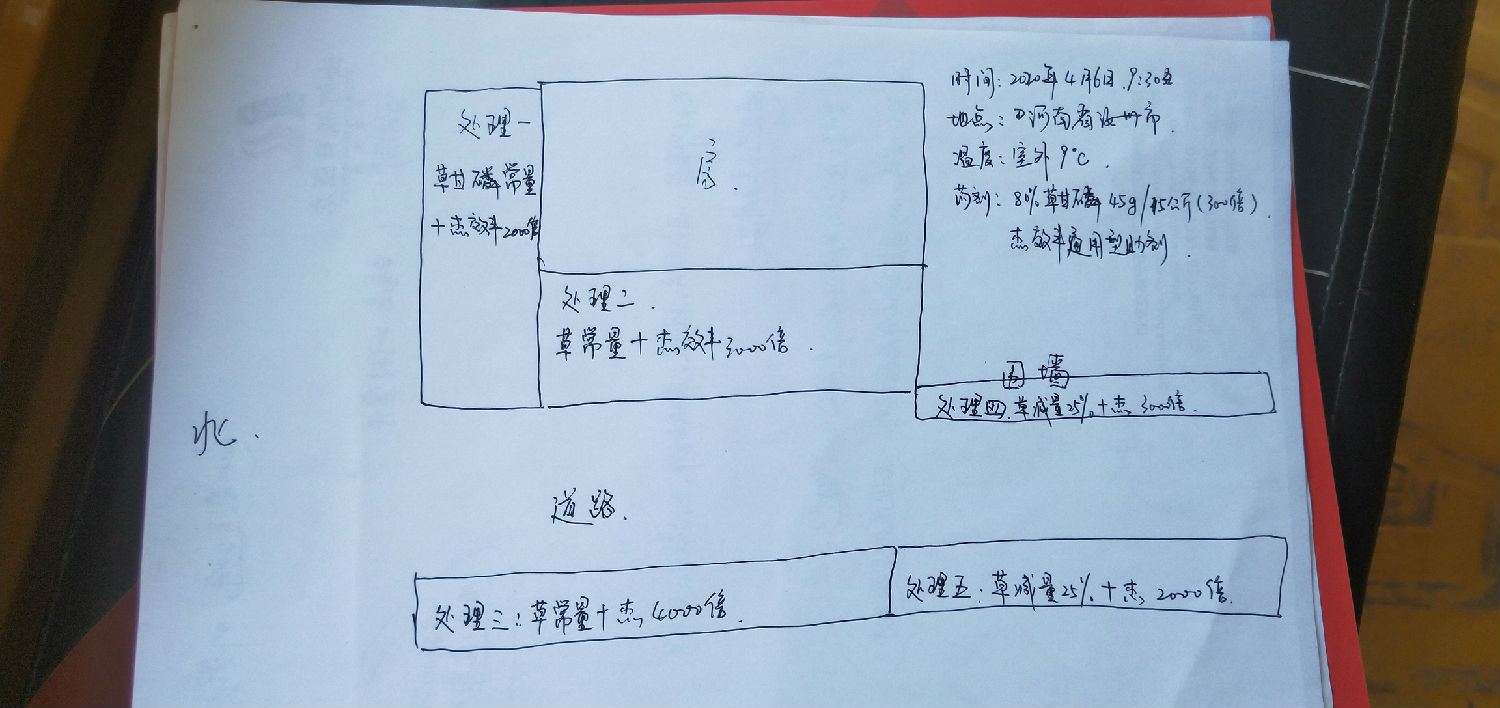 处理一
草甘磷常量
+杰效率2000倍
房.
处理二.
草常量+杰效率3000倍.
时间:2020年4月6日.9:30至
地点:河南省汝州市.
温度:室外9℃.
药剂:80%草甘磷45g/15公斤(300倍).
杰效率通用型助剂.
围墙
处理四.草减量25%+杰3000倍.
北.
道路.
处理三:草常量+杰4000倍.
处理五:草减量25%+杰2000倍.